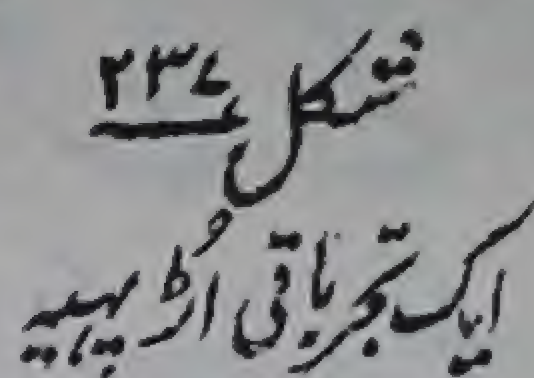 شکل ۲۳۷
ایک تجرباتی اُڑ پہیہ